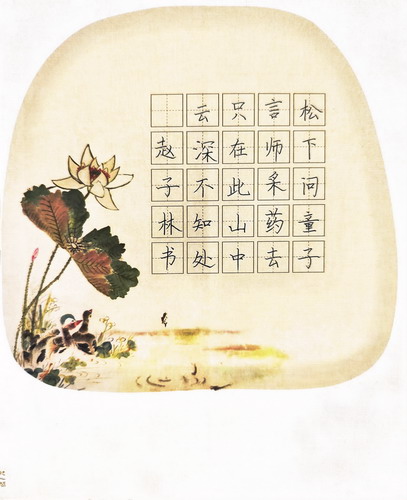 松下问童子
言师采药去
只在此山中
云深不知处
赵子林书